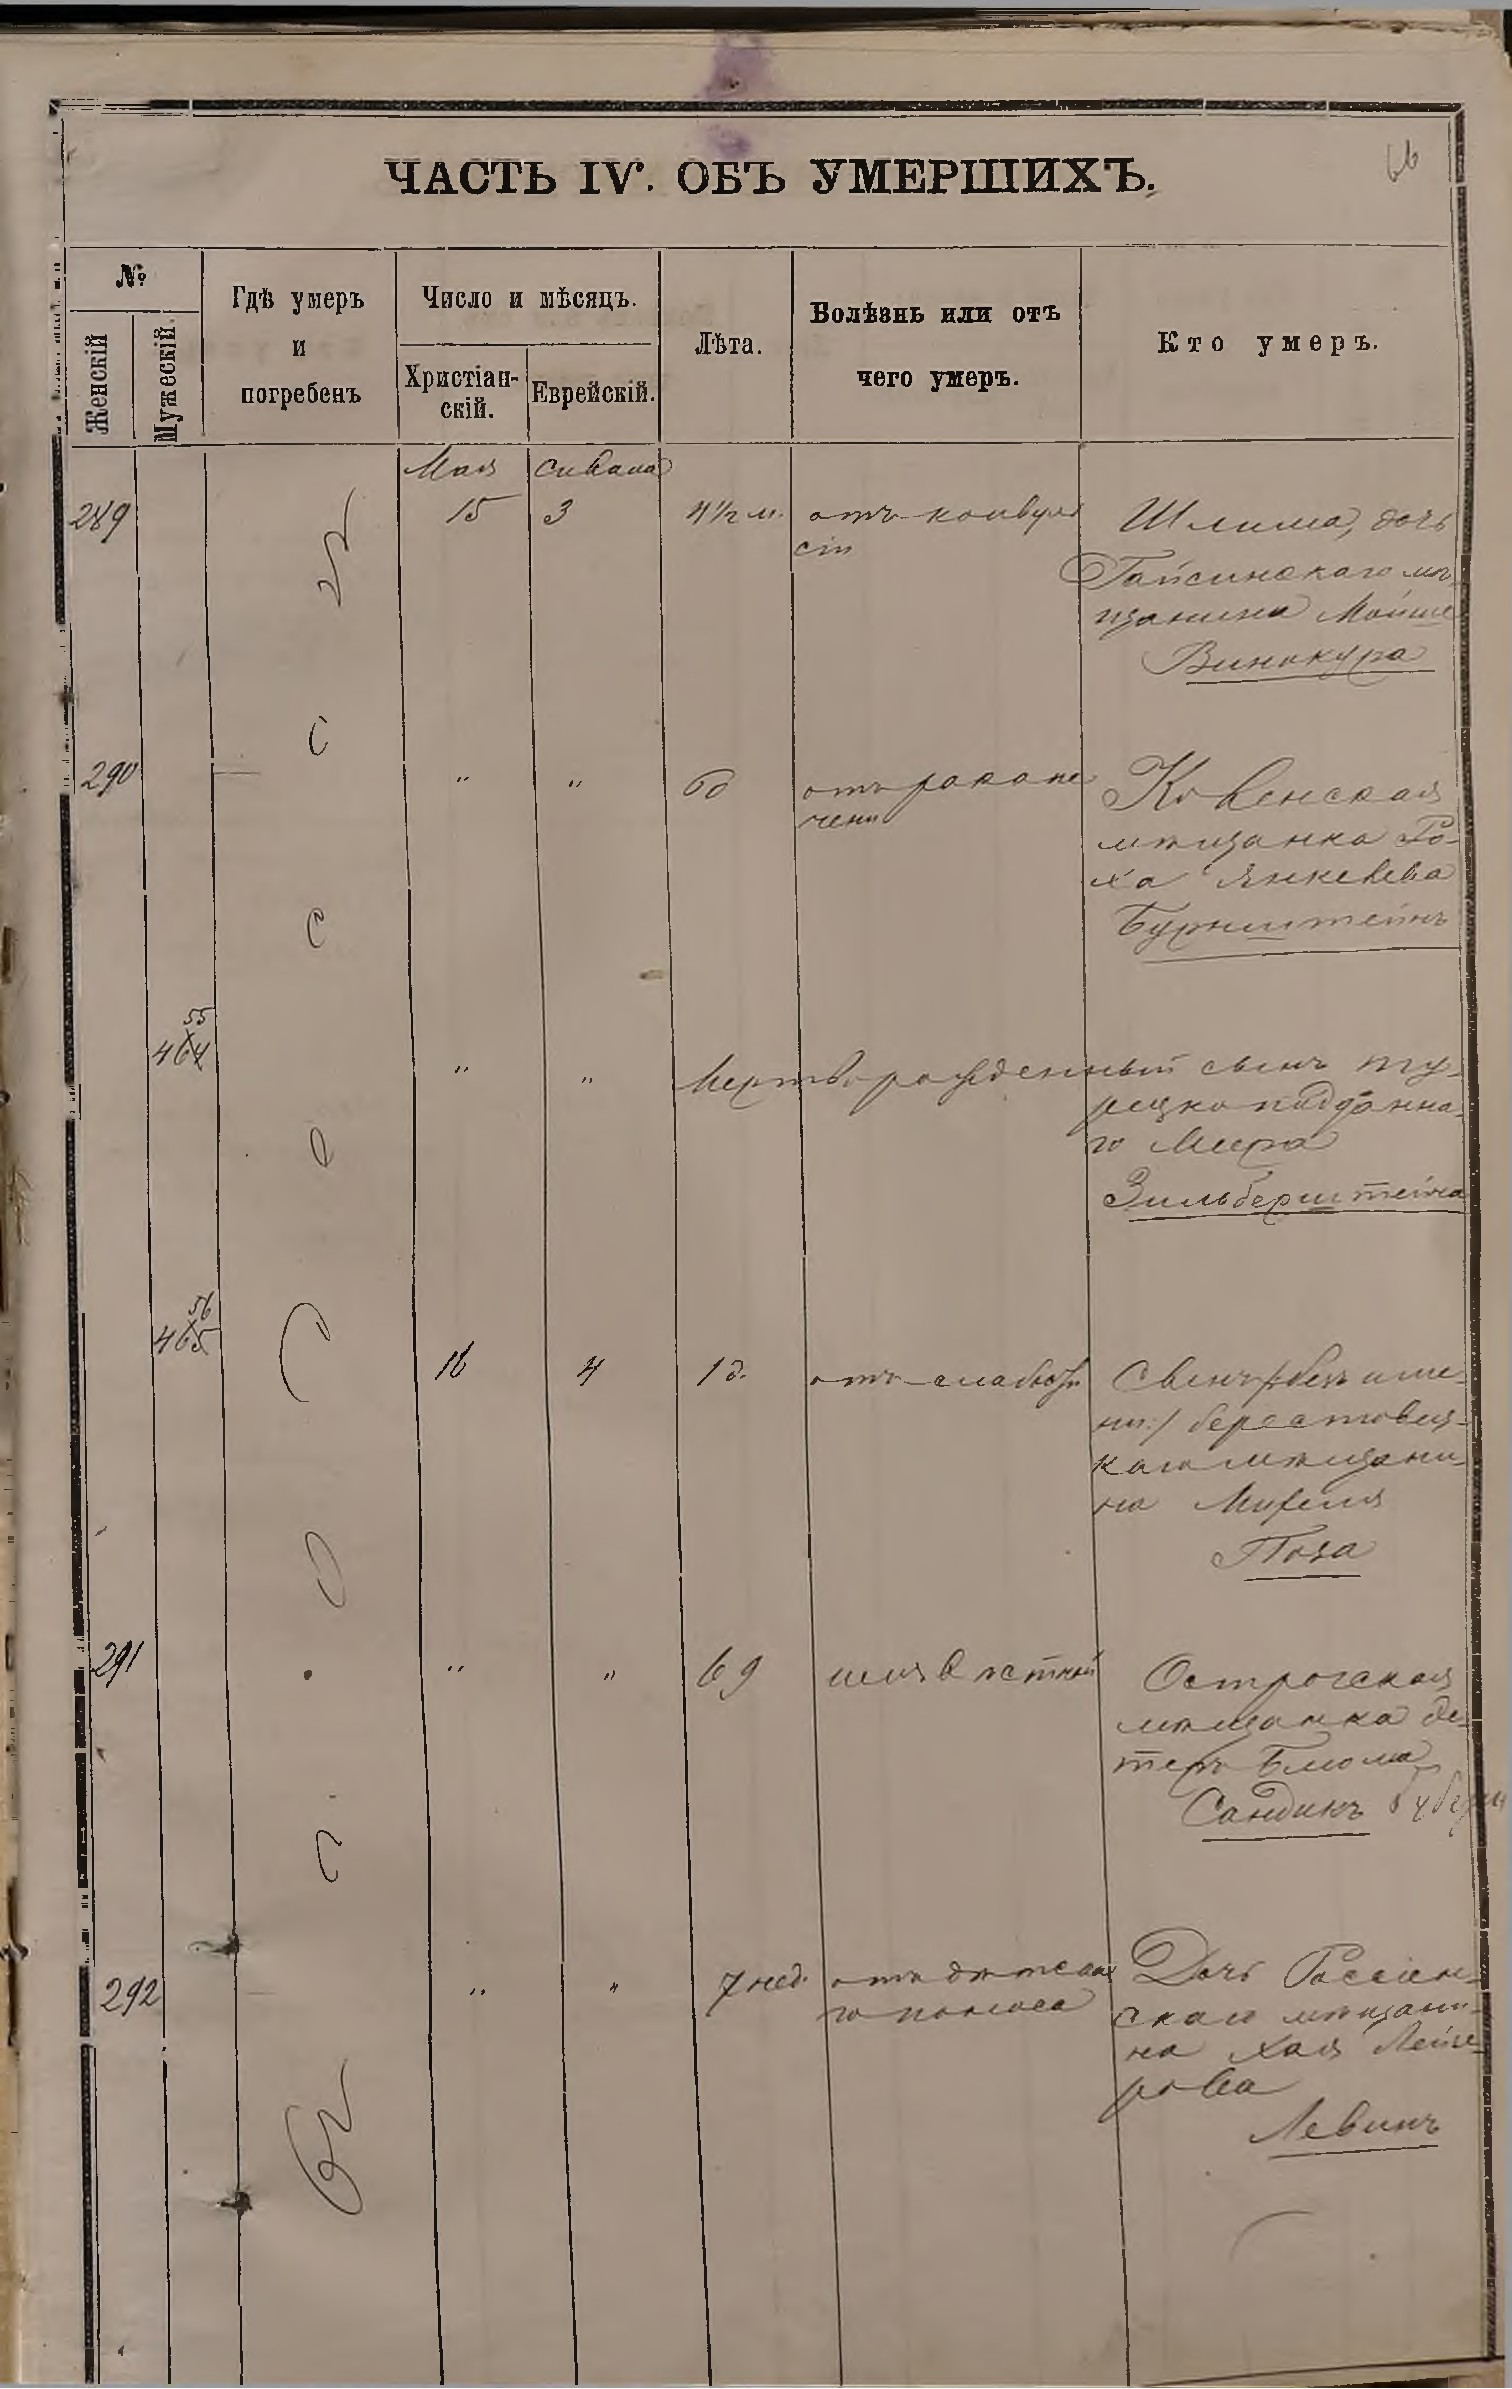 66
ЧАСТЬ IV. ОБЪ УМЕРШИХЪ.
№
Женскій
Мужескій.
Гдѣ умеръ
и
погребенъ
Число и мѣсяцъ.
Христіан-
скій.
Еврейскій.
Лѣта.
Болѣзнь или отъ
чего умеръ.
Кто умеръ.
Мая Сивана
289 15 3 4½ м. отъ конвуль
сіи
Шлима, дочь
Гайсинскаго мѣ-
щанина Мойше
Винокура
290 " " 60 отъ рака пе
чени
Ковенская
мѣщанка Ро-
ха Янкелева
Бурнштейнъ
55
464 " " Мертворожденный сынъ ту-
рецкоподданна-
го Меера
Зильберштейна
56
465 16 4 1 д. отъ слабости
Сынъ /:безъ име-
ни:/ берестовец-
каго мѣщани-
на Михеля
Поза
291 " " 69
Острогская
мѣщанка Эс-
теръ Блюма
Сандикъ
292 " " 7 нед. отъ дѣтска
го поноса
Дочь Россіен-
скаго мѣщани-
на Хая Лейзе-
рова
Левинъ
въ Одессѣ